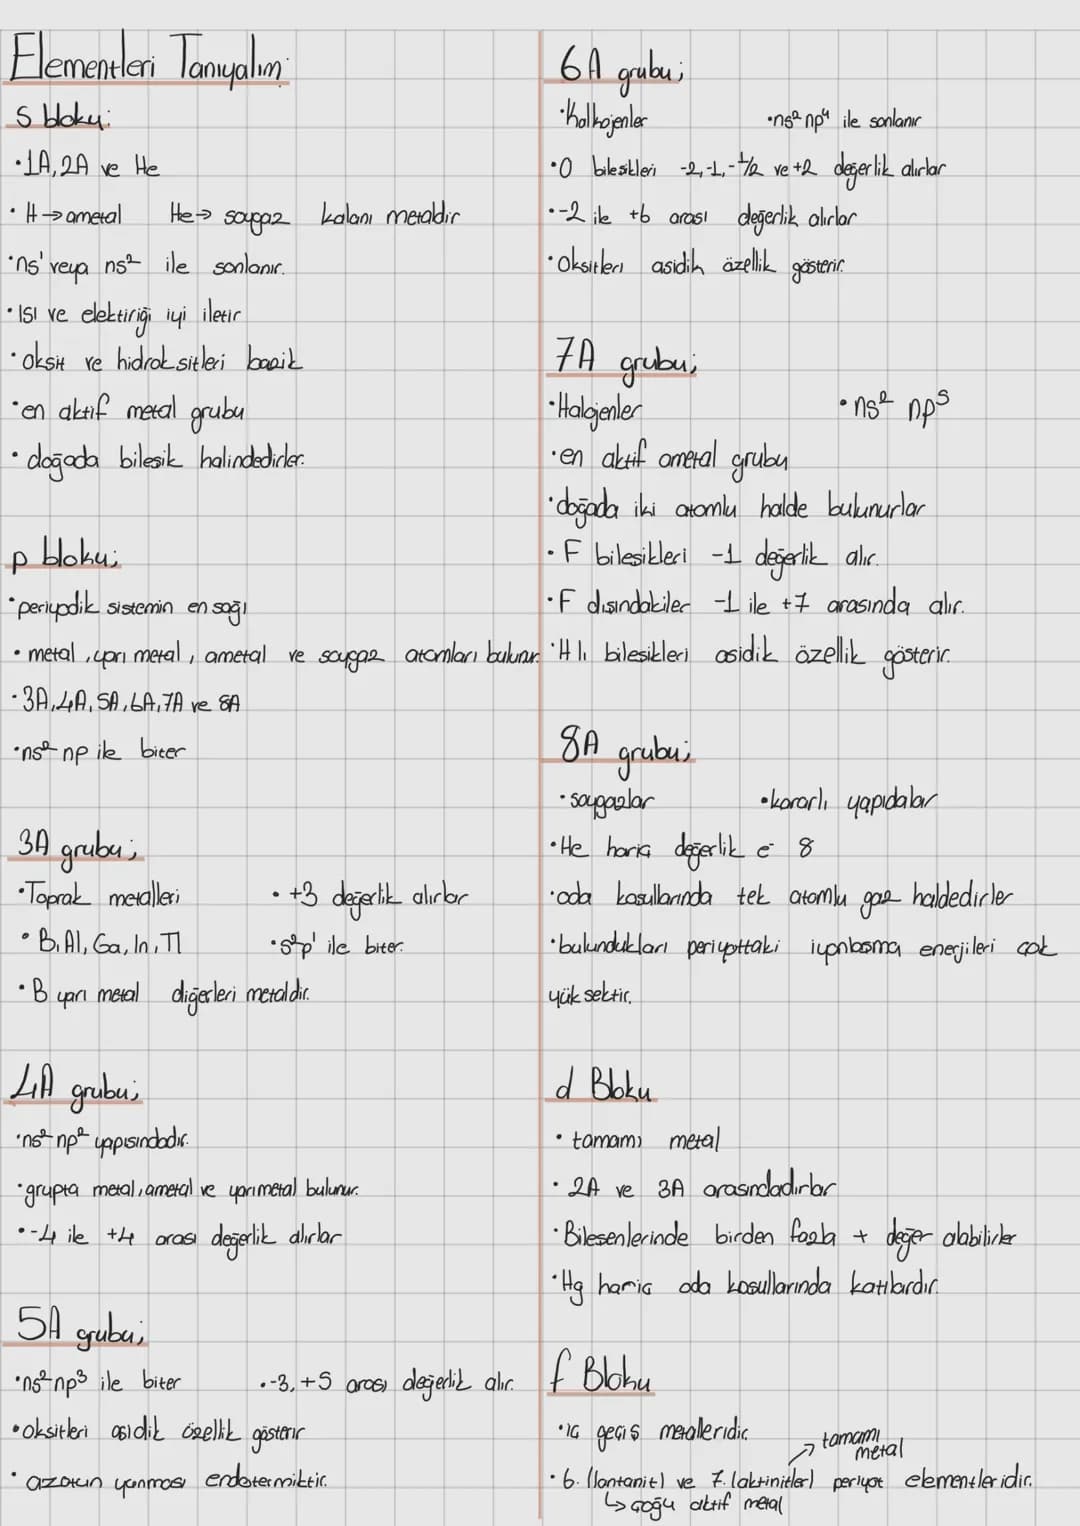 Elementleri Tanıyalım:
s bloku:
•1A, 2A ve He
•H → ametal He → soygaz kalanı metaldir
•ns¹ veya ns² ile sonlanır.
•ısı ve elektiriği iyi iletir
•oksit ve hidroksitleri bazik
•en aktif metal grubu
•doğada bilesik halindedirler.
p bloku;
•periyodik sistemin en sağı
•metal, yarı metal, ametal ve soygaz atomları bulunur.
•3A, 4A, 5A, 6A, 7A ve 8A
•ns² np ile biter
3A grubu;
•Toprak metalleri •+3 değerlik alırlar
•B, Al, Ga, In, Tl •s²p¹ ile biter.
•B yarı metal diğerleri metaldir.
4A grubu;
•ns² np² yapısındadır.
•grupta metal, ametal ve yarımetal bulunur.
•-4 ile +4 arası değerlik alırlar
5A grubu;
•ns² np³ ile biter •-3, +5 arası değerlik alır.
•oksitleri asidik özellik gösterir
•azotun yanması endotermiktir.
6A grubu;
•Kalkojenler •ns² np⁴ ile sonlanır
•O bilesikleri -2, -1, -1/2 ve +2 değerlik alırlar
•-2 ile +6 arası değerlik alırlar
•Oksitleri asidik özellik gösterir.
7A grubu;
•Halojenler •ns² np⁵
•en aktif ametal grubu
•doğada iki atomlu halde bulunurlar
•F bilesikleri -1 değerlik alır.
•F dısındakiler -1 ile +7 arasında alır.
•H lı bilesikleri asidik özellik gösterir.
8A grubu;
•soygazlar •kararlı yapıdalar
•He hariç değerlik e⁻ 8
•oda kosullarında tek atomlu gaz haldedirler
•bulundukları periyottaki iyonlasma enerjileri çok
yüksektir.
d Bloku
•tamamı metal
•2A ve 3A arasındadırlar
•Bilesenlerinde birden fazla + değer alabilirler
•Hg hariç oda kosullarında katılardır.
f Bloku
•iç geçiş metalleridir.
tamamı
metal
•6. (lantanit) ve 7. (aktinitler) periyot elementleridir.
↳ çoğu aktif metal